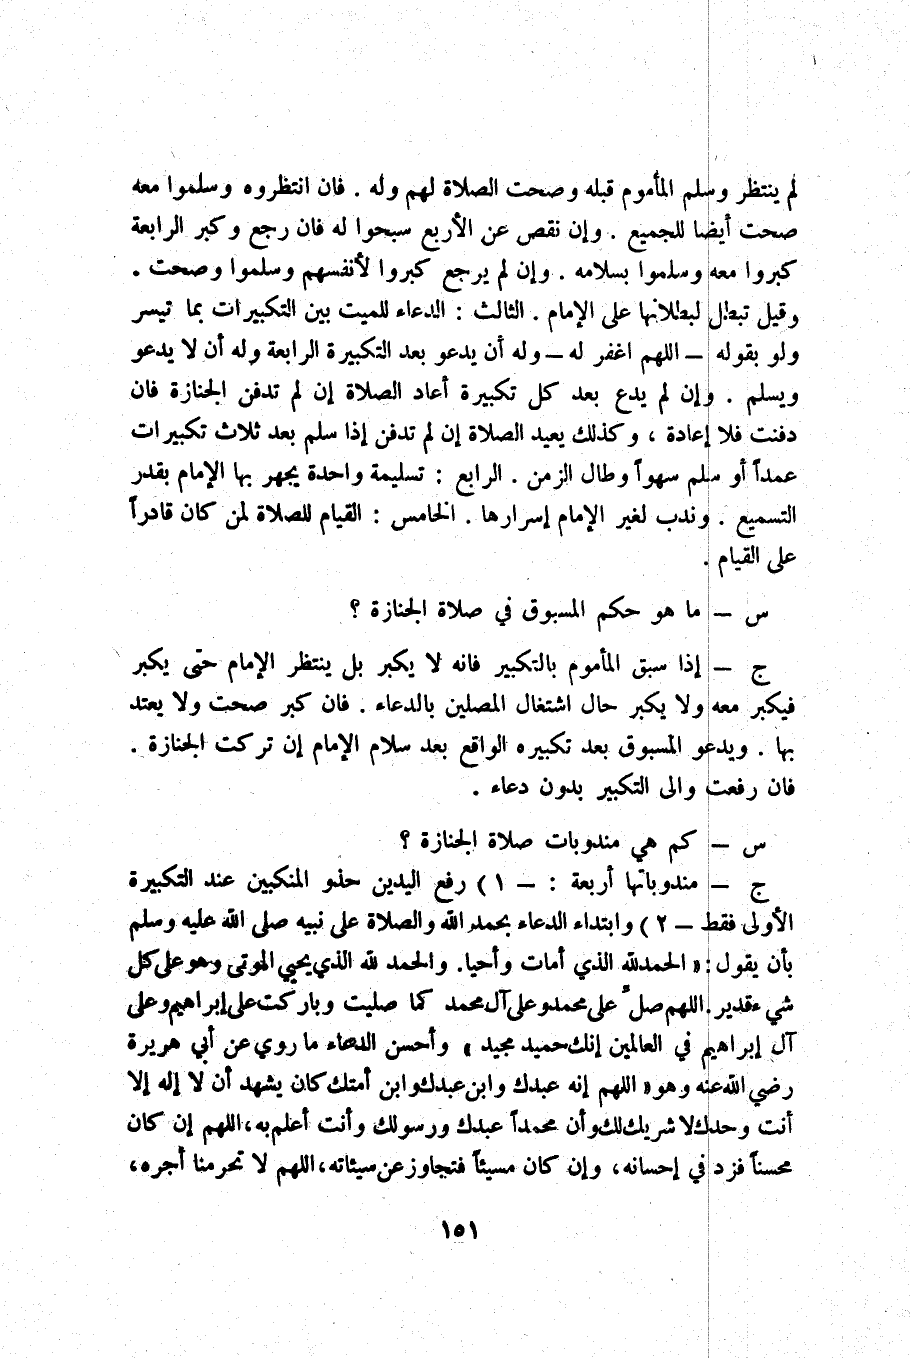 لم ينتظر وسلم المأموم قبله وصحت الصلاة لهم وله . فان انتظروه وسلموا معه
صحت أيضا للجميع . وإن نقص عن الأربع سبحوا له فان رجع وكبر الرابعة
كبروا معه وسلموا بسلامه . وإن لم يرجع كبروا لأنفسهم وسلموا وصحت .
وقيل تبطل لبطلانها على الإمام . الثالث : الدعاء للميت بين التكبيرات بما تيسر
ولو بقوله – اللهم اغفر له – وله أن يدعو بعد التكبيرة الرابعة وله أن لا يدعو
ويسلم . وإن لم يدع بعد كل تكبيرة أعاد الصلاة إن لم تدفن الجنازة فان
دفنت فلا إعادة ، وكذلك يعيد الصلاة إن لم تدفن إذا سلم بعد ثلاث تكبيرات
عمداً أو سلم سهواً وطال الزمن . الرابع : تسليمة واحدة يجهر بها الإمام بقدر
التسميع . وندب لغير الإمام إسرارها . الخامس : القيام للصلاة لمن كان قادراً
على القيام .
س – ما هو حكم المسبوق في صلاة الجنازة ؟
ج – إذا سبق المأموم بالتكبير فانه لا يكبر بل ينتظر الإمام حتى يكبر
فيكبر معه ولا يكبر حال اشتغال المصلين بالدعاء . فان كبر صحت ولا يعتد
بها . ويدعو المسبوق بعد تكبيره الواقع بعد سلام الإمام إن تركت الجنازة .
فان رفعت والى التكبير بدون دعاء .
س – كم هي مندوبات صلاة الجنازة ؟
ج – مندوباتها أربعة : – ١ ) رفع اليدين حذو المنكبين عند التكبيرة
الأولى فقط – ٢ ) وابتداء الدعاء بحمد الله والصلاة على نبيه صلى الله عليه وسلم
بأن يقول : « الحمدلله الذي أمات وأحيا. والحمد لله الذي يحيي الموتى وهو على كل
شيء قدير. اللهم صل على محمد وعلى آل محمد كما صليت وباركت على إبراهيم وعلى
آل إبراهيم في العالمين إنك حميد مجيد » وأحسن الدعاء ما روي عن أبي هريرة
رضي الله عنه وهو « اللهم إنه عبدك وابن عبدك وابن أمتك كان يشهد أن لا إله إلا
أنت وحدك لا شريك لك وأن محمداً عبدك ورسولك وأنت أعلم به، اللهم إن كان
محسناً فزد في إحسانه، وإن كان مسيئاً فتجاوز عن سيئاته، اللهم لا تحرمنا أجره،
١٥١